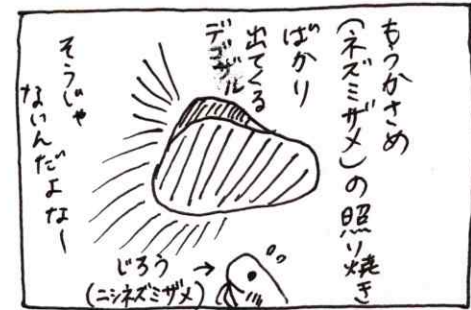 もうかさめ
(ネズミザメ)の照り焼き
ばかり
出てくる
デゴザル
そうじゃ
ないんだよなー
じろう→
(ニシネズミザメ)